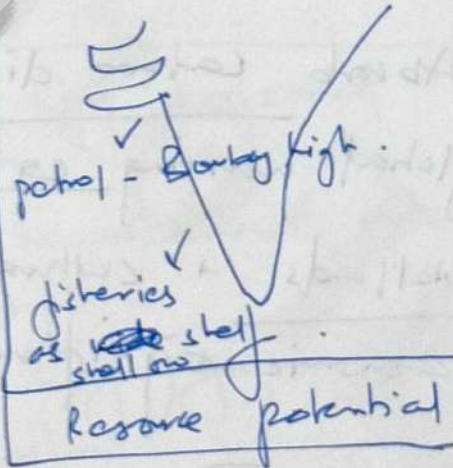 petrol - Bombay high.
fisheries
as shelf
shallow
Resource potential